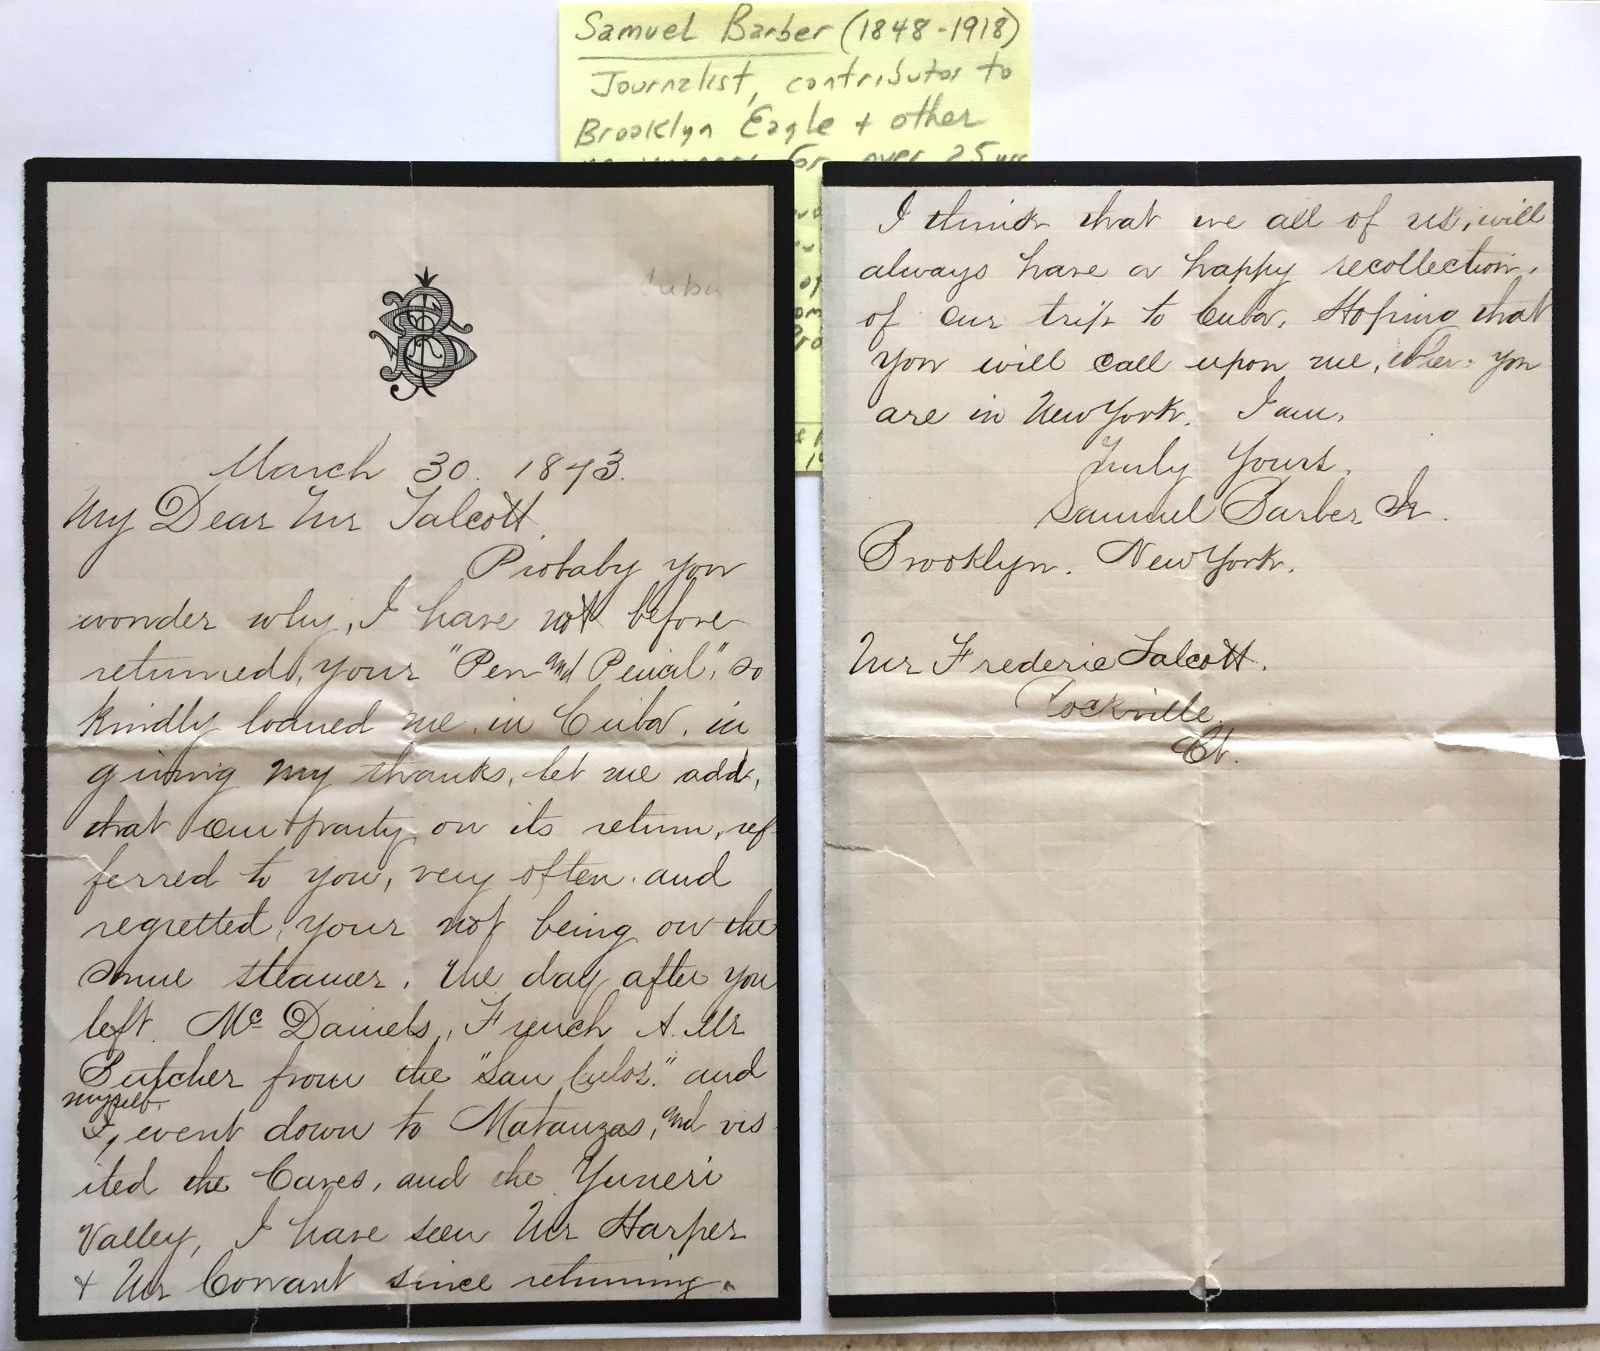 Samuel Barber (1848-1918)
Journalist, contributor to
Brooklyn Eagle + other
for over 25 yrs
Cuba
March 30. 1873.
My Dear Mr Talcott
Probaby you
wonder why, I have not before
returned, your "Pen and Pencil", so
kindly loaned me in Cuba, in
giving my thanks, let me add,
that our party on its return, ref
ferred to you, very often. and
regretted, your not being on the
same steamer. The day after you
left. Mc Daniels, French A. Mr
Butcher from the "San Culos." and
myself.
I, went down to Matanzas, and vis
ited the Caves, and the Yuneri
Valley, I have seen Mr Harper
+ Mr Conant since returning.
I think that we all of us, will
always have a happy recollection,
of our trip to Cuba. Hoping that
you will call upon me, when you
are in New York. I am,
Truly Yours.
Samuel Barber Jr.
Brooklyn. New York.
Mr Frederic Talcott.
Rockville.
Ct.